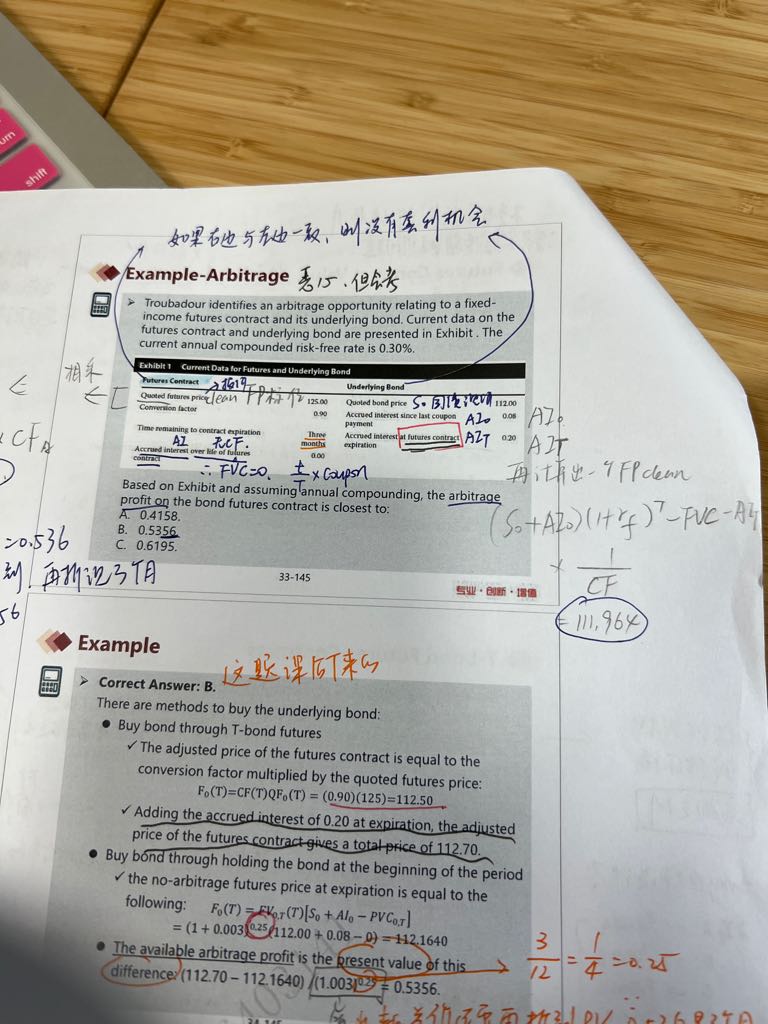 um
shift
如果右边与左边一致，则没有套利机会
Example-Arbitrage 但会考
➤ Troubadour identifies an arbitrage opportunity relating to a fixed-
income futures contract and its underlying bond. Current data on the
futures contract and underlying bond are presented in Exhibit . The
current annual compounded risk-free rate is 0.30%.
Exhibit 1 Current Data for Futures and Underlying Bond
Futures Contract
Underlying Bond
Quoted futures price clean FP 125.00
Quoted bond price S₀ 112.00
Conversion factor 0.90
Accrued interest since last coupon
payment AI₀ 0.08
AI₀
Time remaining to contract expiration Three
months
Accrued interest at futures contract
expiration AIT 0.20
AIT
AI 无CF.
Accrued interest over life of futures
contract 0.00
∴ FVC=0. t/T × Coupon
FP clean
(S₀+AI₀)(1+rf)^T-FVC-AIT
× 1/CF
= 111.964
Based on Exhibit and assuming annual compounding, the arbitrage
profit on the bond futures contract is closest to:
A. 0.4158.
B. 0.5356.
C. 0.6195.
=0.536
再折现3个月
56
33-145
专业·创新·增值
相乘
Example
➤ Correct Answer: B.
There are methods to buy the underlying bond:
● Buy bond through T-bond futures
✓ The adjusted price of the futures contract is equal to the
conversion factor multiplied by the quoted futures price:
F₀(T)=CF(T)QF₀(T) = (0.90)(125)=112.50
✓ Adding the accrued interest of 0.20 at expiration, the adjusted
price of the futures contract gives a total price of 112.70.
● Buy bond through holding the bond at the beginning of the period
✓ the no-arbitrage futures price at expiration is equal to the
following: F₀(T) = FV₀,T(T)[S₀ + AI₀ − PVC₀,T]
= (1 + 0.003)^0.25(112.00 + 0.08 − 0) = 112.1640
● The available arbitrage profit is the present value of this
difference: (112.70 − 112.1640) /(1.003)^0.25 = 0.5356.
3/12 = 1/4 = 0.25